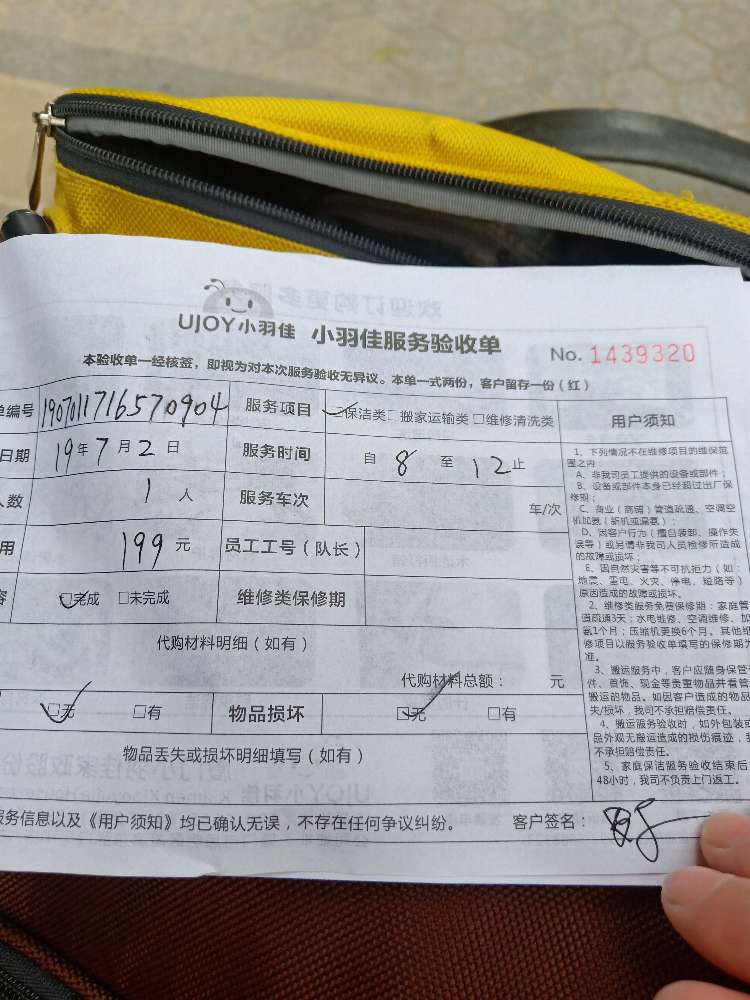 UJOY小羽佳 小羽佳服务验收单
No. 1439320
本验收单一经核签，即视为对本次服务验收无异议。本单一式两份，客户留存一份（红）
单编号 190701171657 0904 服务项目 □保洁类□搬家运输类□维修清洗类 用户须知
日期 19年7月2日 服务时间 自 8 至 12止
人数 1 人 服务车次 车/次
用 199 元 员工工号（队长）
容 □完成 □未完成 维修类保修期
代购材料明细（如有）
代购材料总额： 元
□无 □有 物品损坏 □无 □有
物品丢失或损坏明细填写（如有）
服务信息以及《用户须知》均已确认无误，不存在任何争议纠纷。 客户签名：
1、下列情况不在维修项目的维保范
围之内：
A、非我司员工提供的设备或部件；
B、设备或部件本身已经超过出厂保
修期；
C、商业（商铺）管道疏通、空调空
机加氨（新机或漏氨）；
D、因客户行为（擅自装卸、操作失
误等）或另请非我司人员检修所造成
的故障或损坏；
E、因自然灾害等不可抗力（如：
地震、雷电、火灾、停电、短路等）
原因造成的故障或损坏。
2、维修类服务免费保修期：家庭管
道疏通3天；水电维修、空调维修、加
氨1个月；压缩机更换6个月。其他维
修项目以服务验收单填写的保修期为
准。
3、搬运服务中，客户应随身保管
件、首饰、现金等贵重物品并看管
搬运的物品。如因客户造成的物品
失/损坏，我司不承担赔偿责任。
4、搬运服务验收时，如外包装或
品外观无搬运造成的损伤痕迹，我
不承担赔偿责任。
5、家庭保洁服务验收结束后
48小时，我司不负责上门返工。